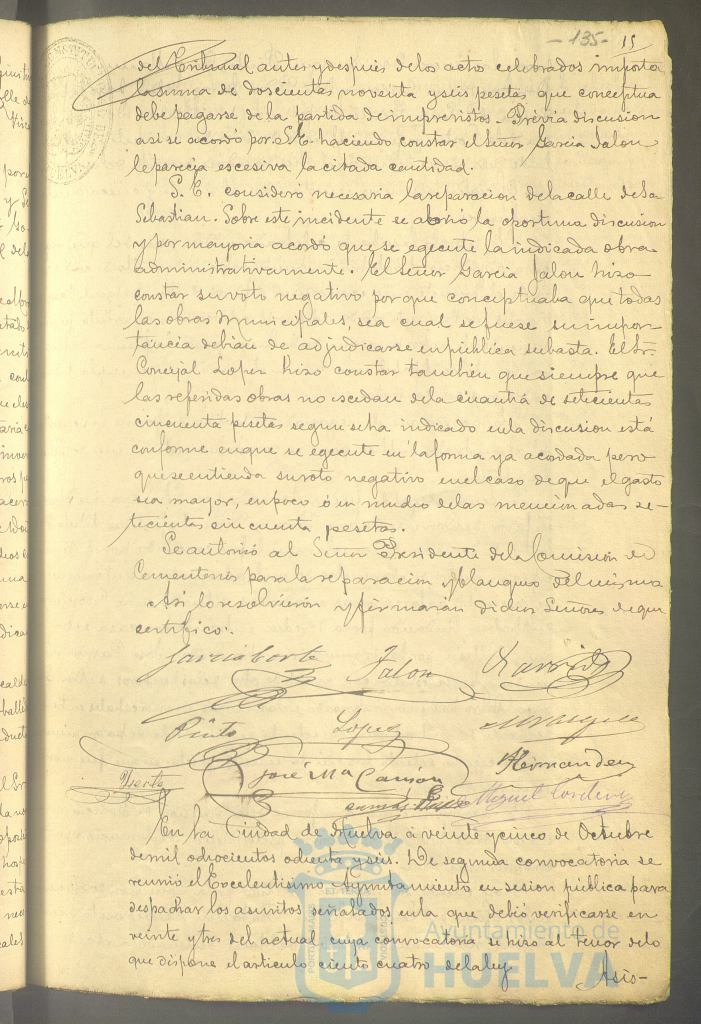 -135- 15
del Tribunal antes y despues de los acto celebrados importa
la suma de doscientas noventa y seis pesetas que conceptua
debe pagarse de la partida de imprevistos. Prévia discusion
asi se acordó por S.E. haciendo constar el Señor Garcia Jalon
le parecia escesiva la citada cantidad.
S. E. consideró necesaria la reparacion de la calle de Sn
Sebastian. Sobre este incidente se abrió la oportuna discusion
y por mayoria acordó que se egecute la indicada obra
administrativamente. El Señor Garcia Jalon hizo
constar su voto negativo por que conceptuaba que todas
las obras Municipales, sea cual se fuese su impor-
tancia debian de adjudicarse en publica subasta. El Sr.
Concejal Lopez hizo constar también que siempre que
las referidas obras no escedan de la cuantia de setecientas
cincuenta pesetas segun se ha indicado en la discusion está
conforme en que se egecute en la forma ya acordada pero
que se entienda su voto negativo en el caso de que el gasto
sea mayor, en poco ó en mucho de las mencionadas se-
tecientas cincuenta pesetas.
Se autorizó al Señor Presidente de la Comision de
Cementerios para la reparacion y blanqueo del mismo
Asi lo resolvieron y firmarán dichos Señores de que
certifico.
Garcia Corte Jalon Garrido
Pinto Lopez
José Ma Carrión Hernandez
Miguel Cordero
En la Ciudad de Huelva á veinte y cinco de Octubre
de mil ochocientos ochenta y seis. De segunda convocatoria se
reunió el Excelentisimo Ayuntamiento en sesion publica para
despachar los asuntos señalados en la que debió verificarse en
veinte y tres del actual, cuya convocatoria se hizo al tenor de lo
que dispone el articulo ciento cuatro de la ley Asis-
Ayuntamiento de
HUELVA